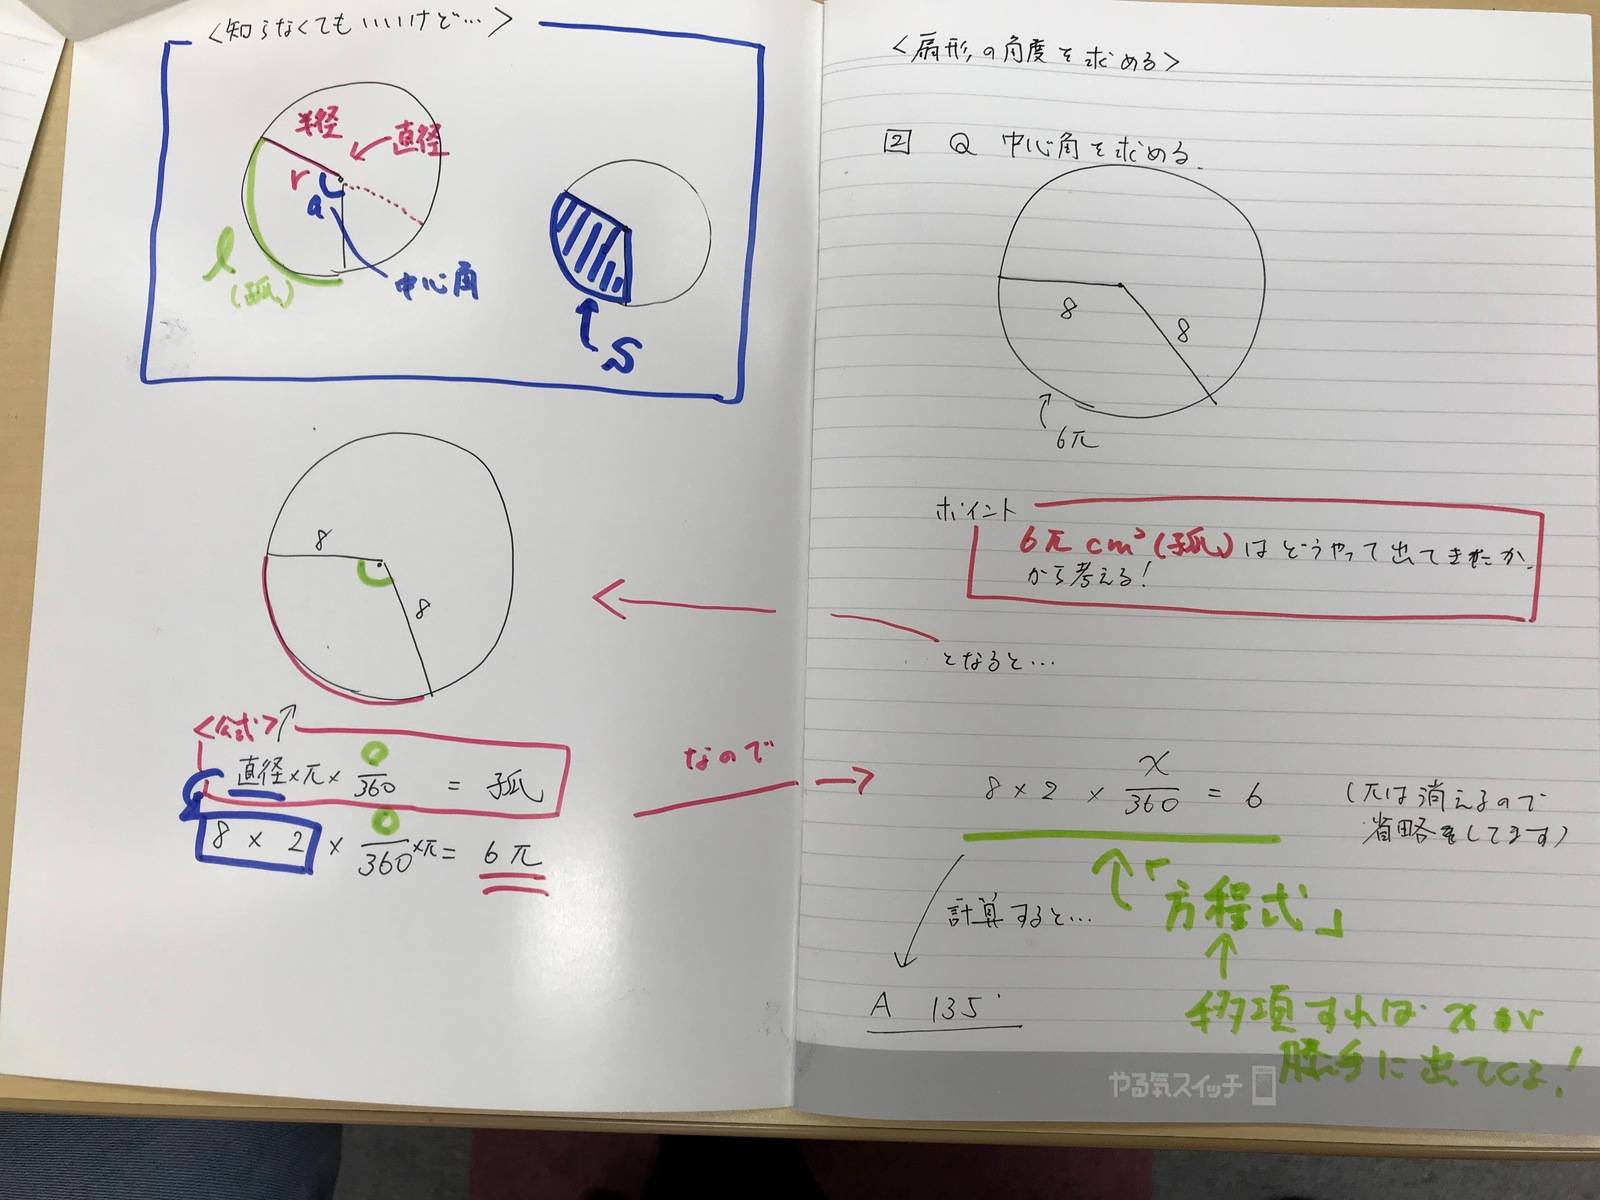 <知らなくてもいいけど…>
半径
直径
r
a
l
(孤)
中心角
S
8
8
<公式>
直径×π×○/360 = 孤
8×2×○/360×π= 6π
なので
<扇形の角度を求める>
2 Q 中心角を求める.
8
8
6π
ポイント
6π cm²(孤)はどうやって出てきたか
から考える!
となると…
8×2×x/360=6
(πは消えるので
省略をしてます)
計算すると…
「方程式」
A 135°
移項すれば xが
勝手に出てくる!
やる気スイッチ